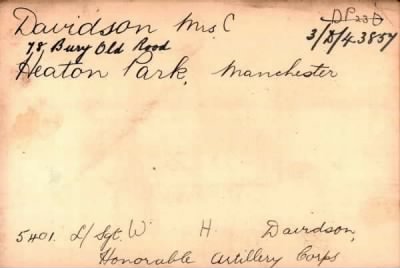 Davidson Mrs. C
DP23D
3/D/4 3857
78 Bury Old Rood
Heaton Park, Manchester
5401. L/Sgt. W H. Davidson,
Honorable Artillery Corps